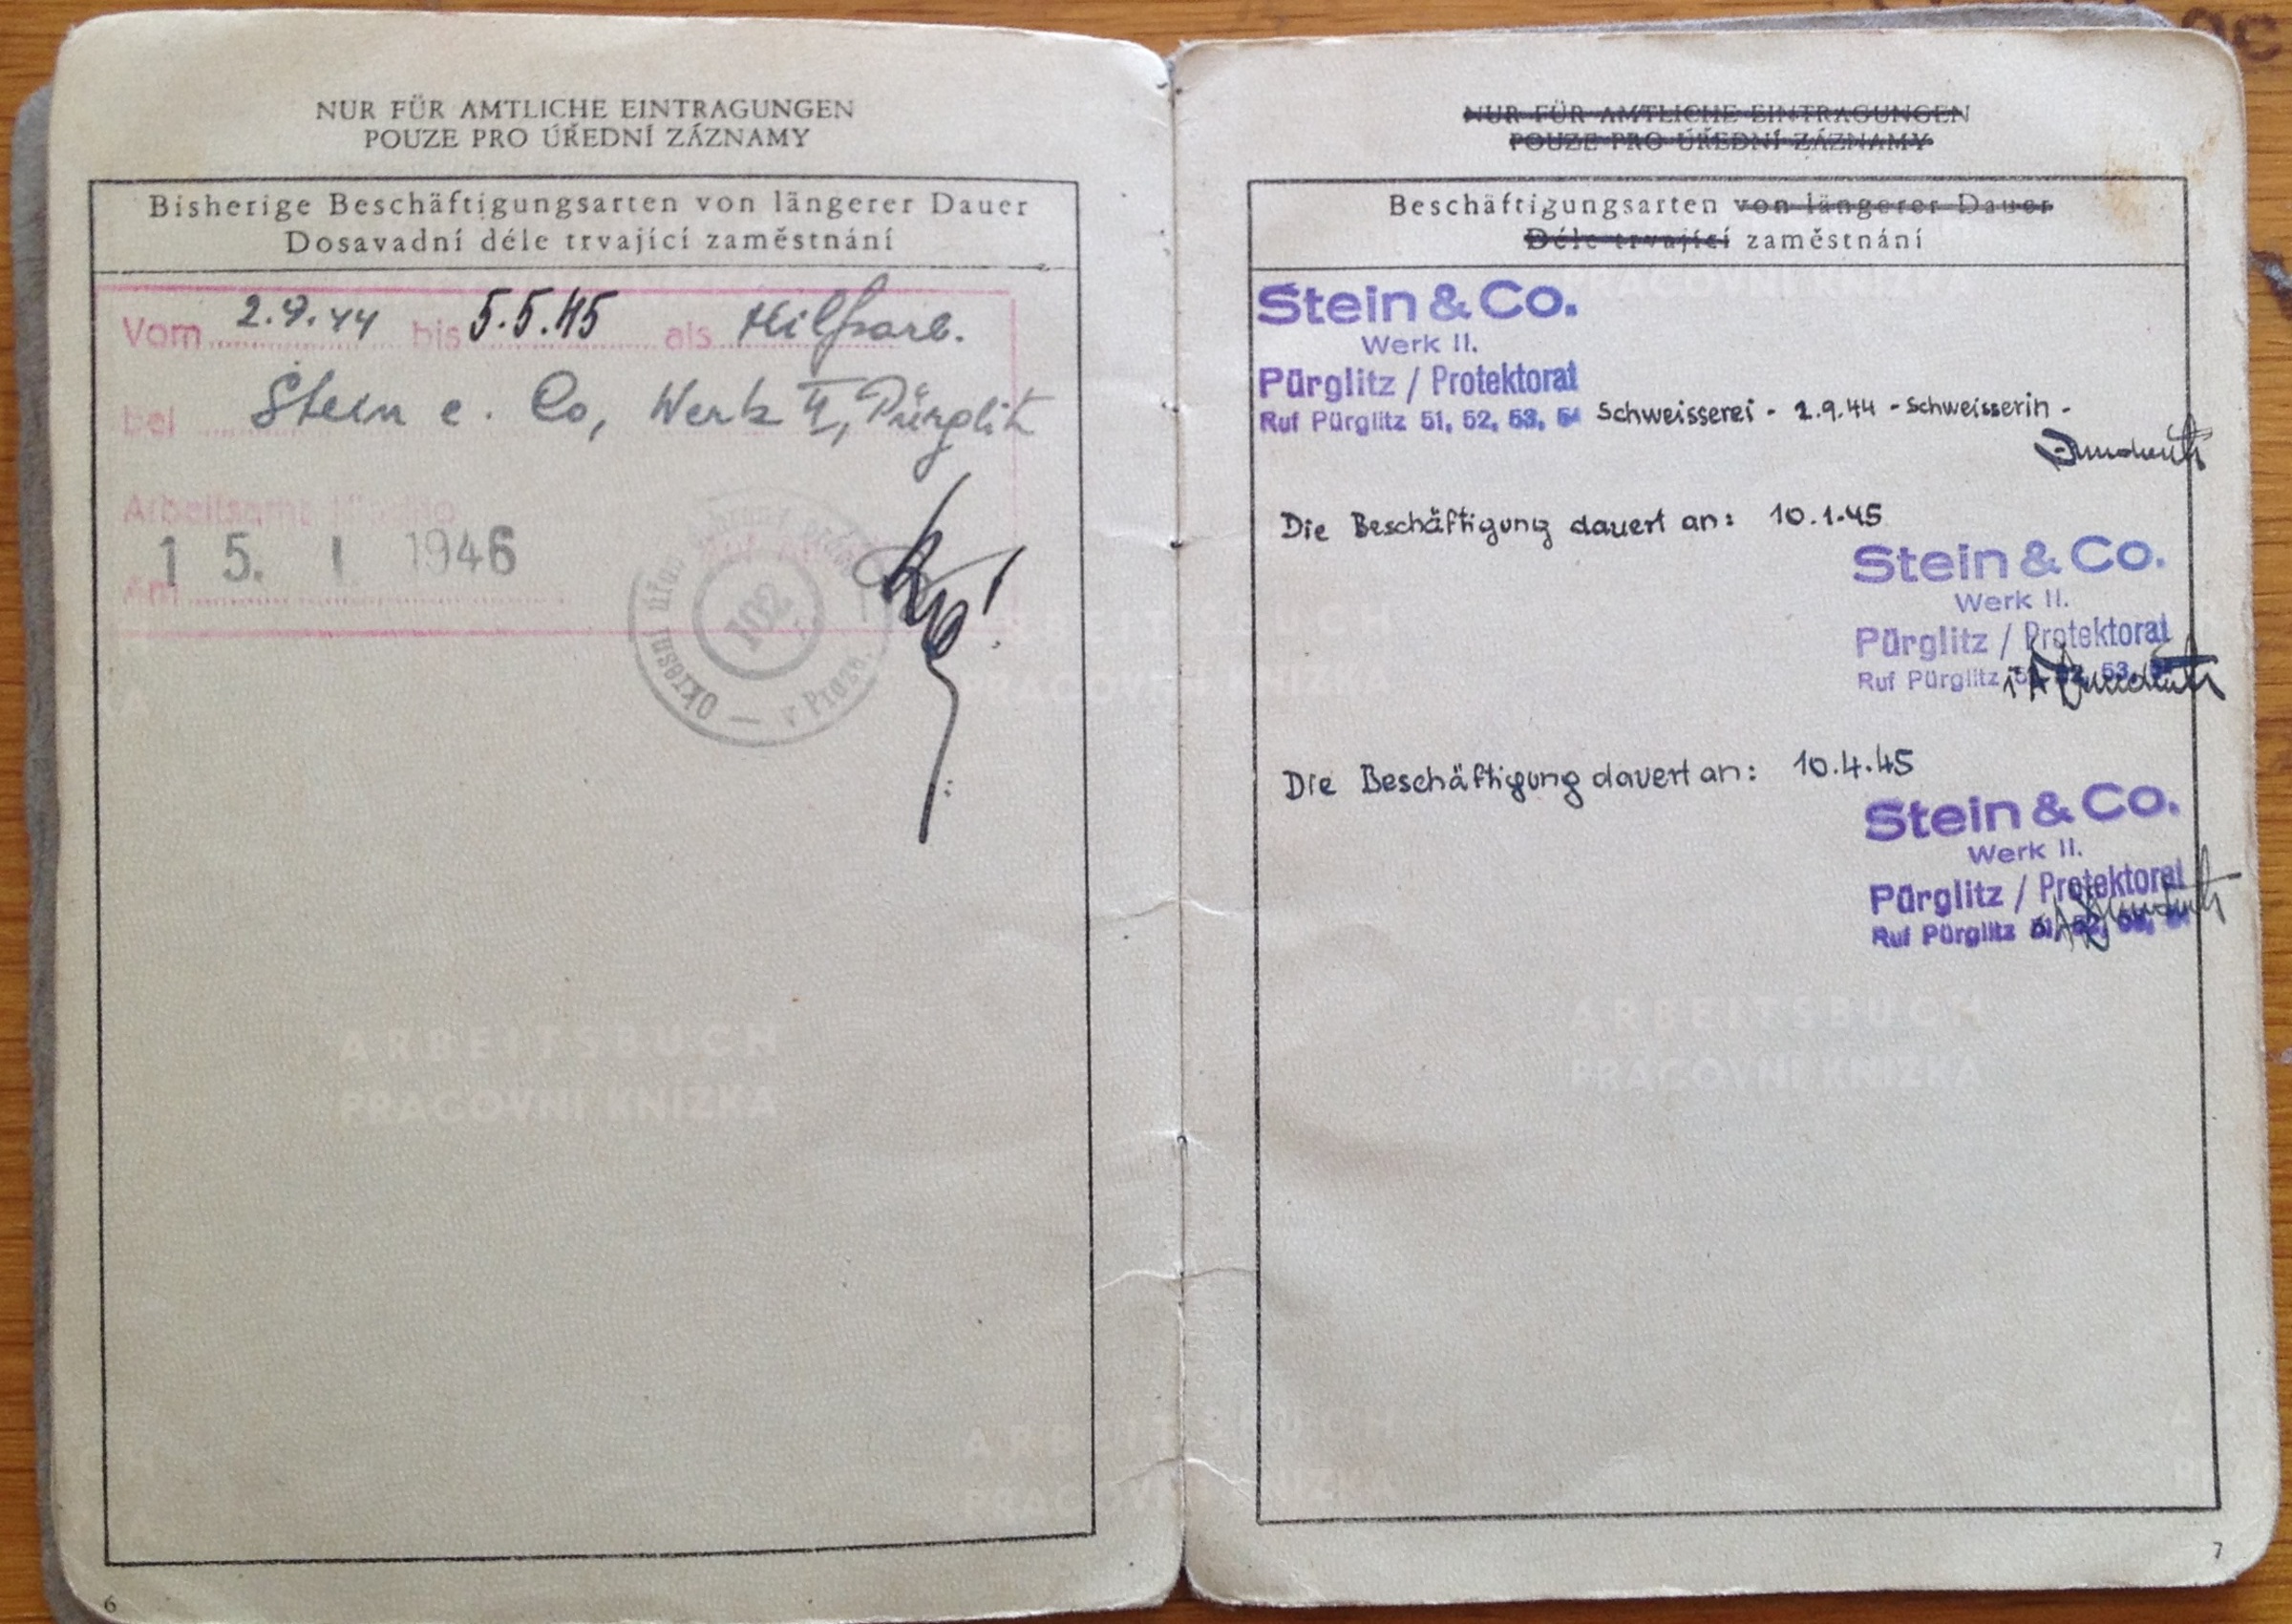 NUR FÜR AMTLICHE EINTRAGUNGEN
POUZE PRO ÚŘEDNÍ ZÁZNAMY
Bisherige Beschäftigungsarten von längerer Dauer
Dosavadní déle trvající zaměstnání
Vom 2.9.44 bis 5.5.45 als Hilfsarb.
bei Stein e. Co, Werk II, Pürglitz
Arbeitsamt
Am 15. I. 1946
Okresní úřad
102
v Praze
ARBEITSBUCH
PRACOVNÍ KNÍŽKA
6
NUR FÜR AMTLICHE EINTRAGUNGEN
POUZE PRO ÚŘEDNÍ ZÁZNAMY
Beschäftigungsarten von längerer Dauer
Déle trvající zaměstnání
Stein & Co.
Werk II.
Pürglitz / Protektorat
Ruf Pürglitz 51, 52, 53, 54 Schweisserei - 2.9.44 - Schweisserin -
Die Beschäftigung dauert an: 10.1.45
Stein & Co.
Werk II.
Pürglitz / Protektorat
Ruf Pürglitz 53,
Die Beschäftigung dauert an: 10.4.45
Stein & Co.
Werk II.
Pürglitz / Protektorat
Ruf Pürglitz 51, 52,
ARBEITSBUCH
PRACOVNÍ KNÍŽKA
ARBEITSBUCH
PRACOVNÍ KNÍŽKA
7